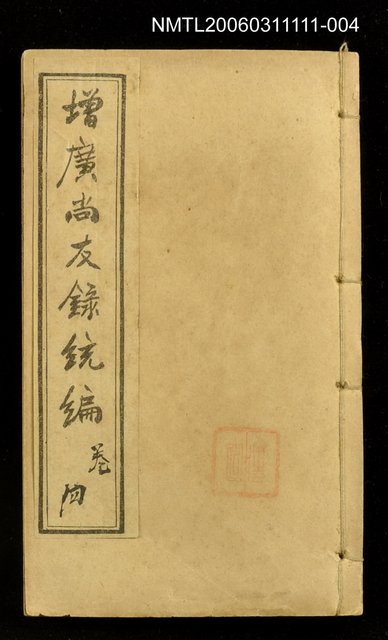 NMTL20060311111-004
增廣尚友錄統編
卷四